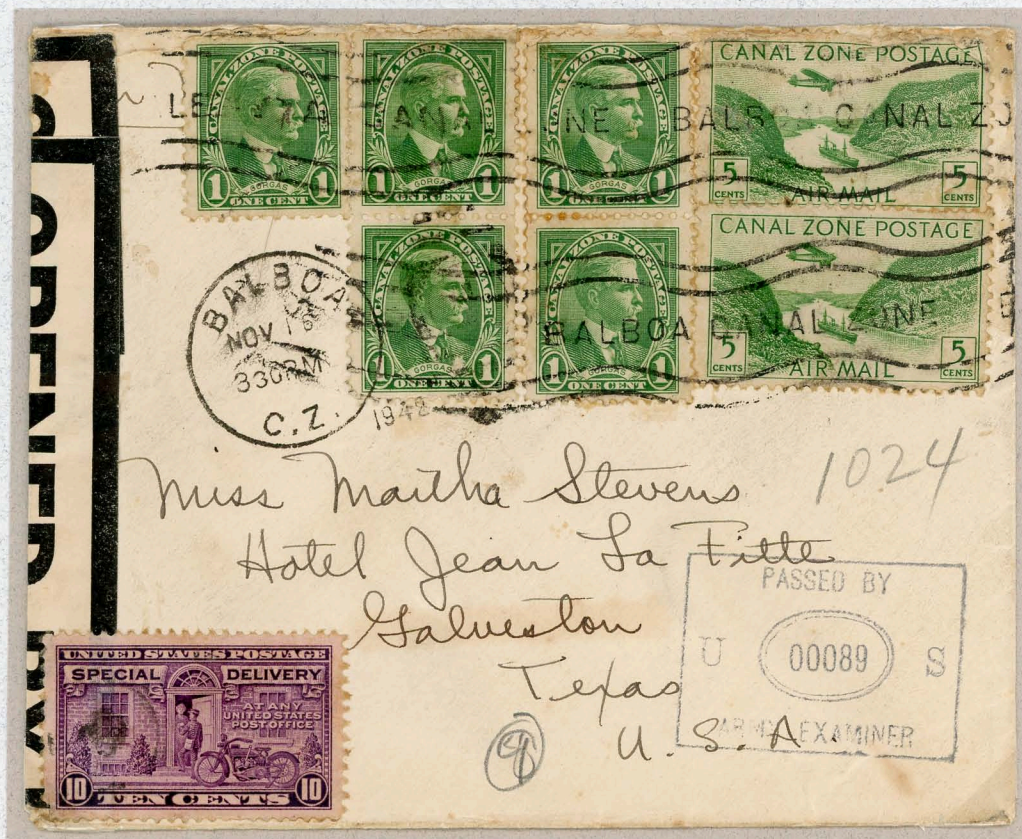 CANAL ZONE POSTAGE
GORGAS
1 1
ONE CENT
CANAL ZONE POSTAGE
GORGAS
1 1
ONE CENT
CANAL ZONE POSTAGE
GORGAS
1 1
ONE CENT
CANAL ZONE POSTAGE
5 CENTS
AIR MAIL
5 CENTS
BALBOA CANAL ZO
CANAL ZONE POSTAGE
GORGAS
1 1
ONE CENT
CANAL ZONE POSTAGE
GORGAS
1 1
ONE CENT
CANAL ZONE POSTAGE
5 CENTS
AIR MAIL
5 CENTS
BALBOA CANAL ZONE
BALBOA
NOV 16
330PM
C.Z.
1942
OPENED BY
1024
Miss Martha Stevens
Hotel Jean La Fitte
Galveston
Texas
U. S. A.
PASSED BY
U 00089 S
ARMY EXAMINER
UNITED STATES POSTAGE
SPECIAL DELIVERY
AT ANY
UNITED STATES
POST OFFICE
10 10
TEN CENTS